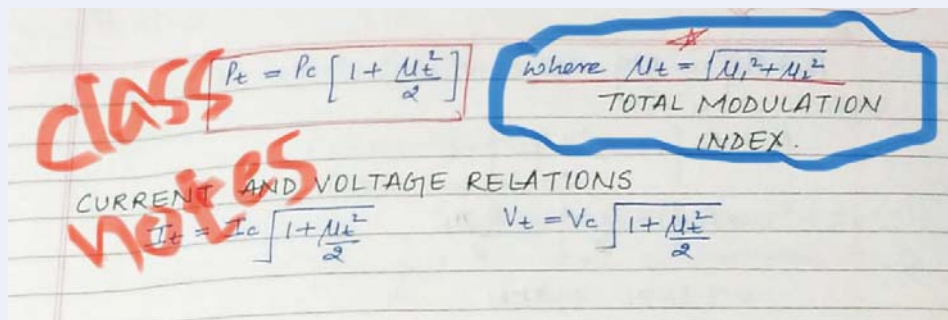 class
notes
Pt = Pc [1 + μt²/2]
where μt = √μ₁²+μ₂²
TOTAL MODULATION
INDEX.
CURRENT AND VOLTAGE RELATIONS
It = Ic √1+μt²/2
Vt = Vc √1+μt²/2